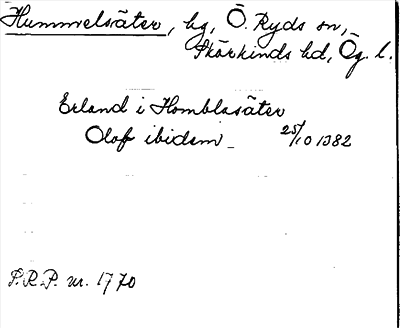 Hummelsäter, hg, Ö. Ryds sn,
Skärkinds hd, Ög. l.
Erland i Homblasäter
Olof ibidem _ 25/10 1382
P.R.P. nr. 1770